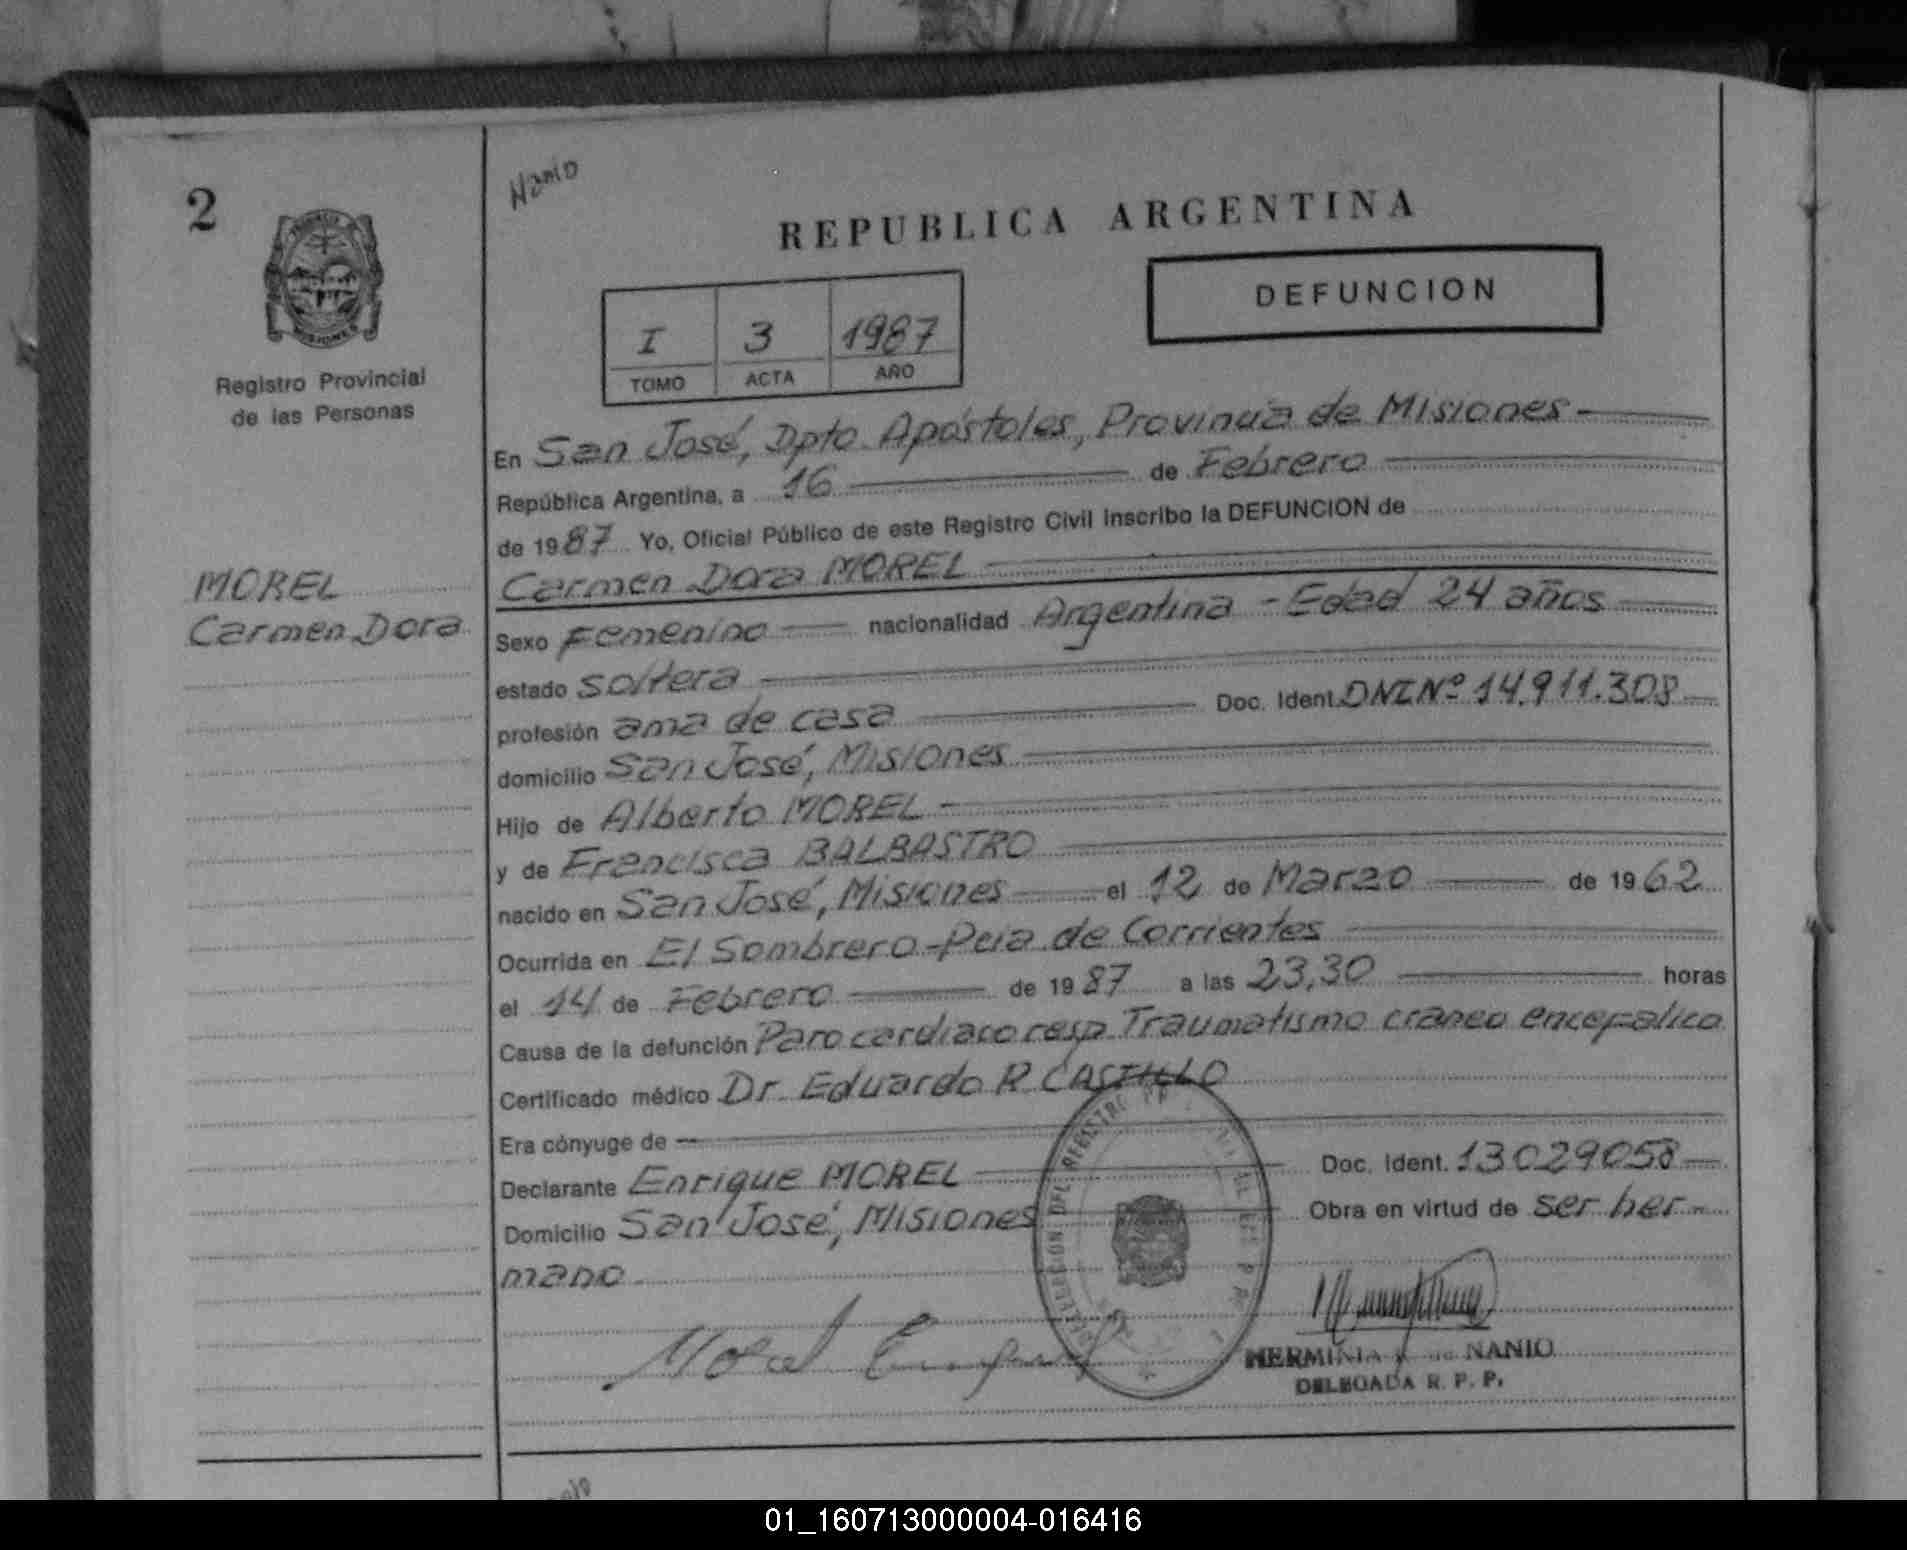 2
Nanio
REPUBLICA ARGENTINA
DEFUNCION
I 3 1987
TOMO ACTA AÑO
Registro Provincial
de las Personas
MOREL
Carmen Dora
En San José, Dpto. Apóstoles, Provincia de Misiones
República Argentina, a 16 de Febrero
de 1987 Yo, Oficial Público de este Registro Civil inscribo la DEFUNCION de
Carmen Dora MOREL
Sexo Femenino nacionalidad Argentina - Edad 24 años
estado soltera
profesión ama de casa Doc. Ident. DNI Nº 14.911.308
domicilio San José, Misiones
Hijo de Alberto MOREL
y de Francisca BALBASTRO
nacido en San José, Misiones el 12 de Marzo de 1962
Ocurrida en El Sombrero - Pcia de Corrientes
el 14 de Febrero de 1987 a las 23,30 horas
Causa de la defunción Paro cardiaco resp Traumatismo craneo encefalico
Certificado médico Dr. Eduardo R CASTILLO
Era cónyuge de
Declarante Enrique MOREL Doc. Ident. 13029058
Domicilio San José, Misiones Obra en virtud de ser her-
mano
Morel
DEL REGISTRO
HERMINIA de NANIO
DELEGADA R. P. P.
01_160713000004-016416